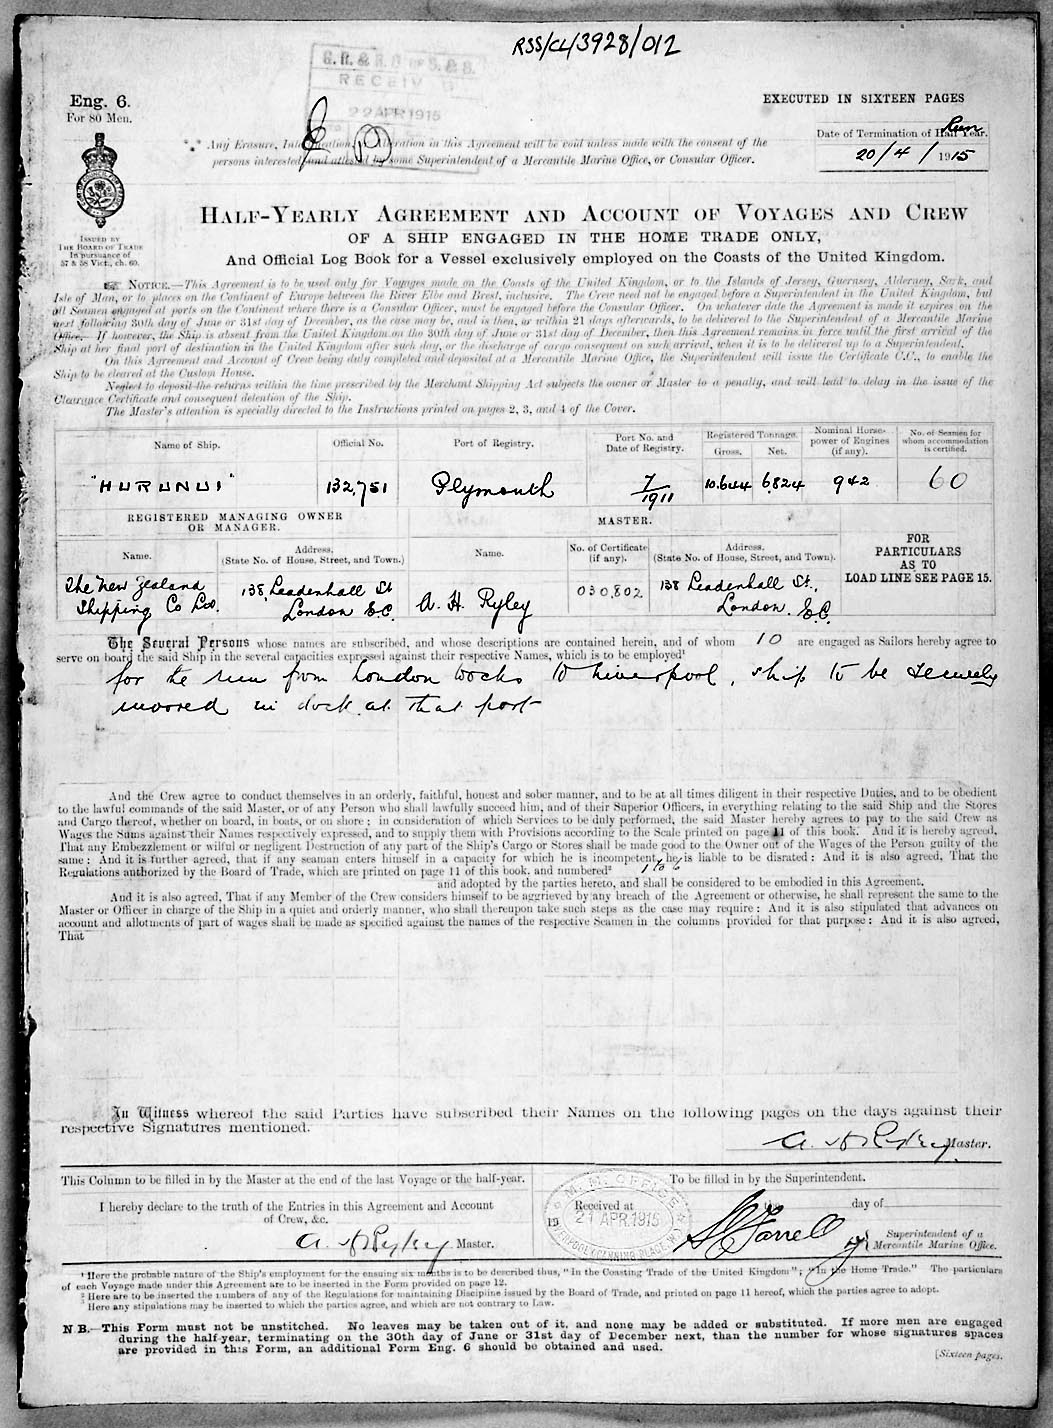 RSS/CL/3928/012
G.R. & R.O. OF S. & S.
RECEIVED
22 APR 1915
Eng. 6.
For 80 Men.
EXECUTED IN SIXTEEN PAGES
Date of Termination of Half Year.
Run
20/4/1915
Any Erasure, Interlineation, or Alteration in this Agreement will be void unless made with the consent of the
persons interested, and attested by some Superintendent of a Mercantile Marine Office, or Consular Officer.
ISSUED BY
THE BOARD OF TRADE
In pursuance of
57 & 58 Vict., ch. 60.
HALF-YEARLY AGREEMENT AND ACCOUNT OF VOYAGES AND CREW
OF A SHIP ENGAGED IN THE HOME TRADE ONLY,
And Official Log Book for a Vessel exclusively employed on the Coasts of the United Kingdom.
NOTICE.—This Agreement is to be used only for Voyages made on the Coasts of the United Kingdom, or to the Islands of Jersey, Guernsey, Alderney, Sark, and
Isle of Man, or to places on the Continent of Europe between the River Elbe and Brest, inclusive. The Crew need not be engaged before a Superintendent in the United Kingdom, but
all Seamen engaged at ports on the Continent where there is a Consular Officer, must be engaged before the Consular Officer. On whatever date the Agreement is made it expires on the
next following 30th day of June or 31st day of December, as the case may be, and is then, or within 21 days afterwards, to be delivered to the Superintendent of a Mercantile Marine
Office. If however, the Ship is absent from the United Kingdom on the 30th day of June or 31st day of December, then this Agreement remains in force until the first arrival of the
Ship at her final port of destination in the United Kingdom after such day, or the discharge of cargo consequent on such arrival, when it is to be delivered up to a Superintendent.
On this Agreement and Account of Crew being duly completed and deposited at a Mercantile Marine Office, the Superintendent will issue the Certificate C.C., to enable the
Ship to be cleared at the Custom House.
Neglect to deposit the returns within the time prescribed by the Merchant Shipping Act subjects the owner or Master to a penalty, and will lead to delay in the issue of the
Clearance Certificate and consequent detention of the Ship.
The Master's attention is specially directed to the Instructions printed on pages 2, 3, and 4 of the Cover.
Name of Ship.
Official No.
Port of Registry.
Port No. and
Date of Registry.
Registered Tonnage.
Gross.
Net.
Nominal Horse-
power of Engines
(if any).
No. of Seamen for
whom accommodation
is certified.
"HURUNUI"
132,751
Plymouth
7/1911
10,644
6,824
942
60
REGISTERED MANAGING OWNER
OR MANAGER.
MASTER.
Name.
Address.
(State No. of House, Street, and Town.)
Name.
No. of Certificate
(if any).
Address.
(State No. of House, Street, and Town).
FOR
PARTICULARS
AS TO
LOAD LINE SEE PAGE 15.
The New Zealand
Shipping Co Ltd.
138, Leadenhall St
London E.C.
A. H. Ryley
030,802
138 Leadenhall St.,
London. E.C.
The Several Persons whose names are subscribed, and whose descriptions are contained herein, and of whom 10 are engaged as Sailors hereby agree to
serve on board the said Ship in the several capacities expressed against their respective Names, which is to be employed¹
for the run from London Docks to Liverpool, ship to be securely
moored in dock at that port
And the Crew agree to conduct themselves in an orderly, faithful, honest and sober manner, and to be at all times diligent in their respective Duties, and to be obedient
to the lawful commands of the said Master, or of any Person who shall lawfully succeed him, and of their Superior Officers, in everything relating to the said Ship and the Stores
and Cargo thereof, whether on board, in boats, or on shore; in consideration of which Services to be duly performed, the said Master hereby agrees to pay to the said Crew as
Wages the Sums against their Names respectively expressed, and to supply them with Provisions according to the Scale printed on page 11 of this book. And it is hereby agreed,
That any Embezzlement or wilful or negligent Destruction of any part of the Ship's Cargo or Stores shall be made good to the Owner out of the Wages of the Person guilty of the
same: And it is further agreed, that if any seaman enters himself in a capacity for which he is incompetent, he is liable to be disrated: And it is also agreed, That the
Regulations authorized by the Board of Trade, which are printed on page 11 of this book, and numbered² 1 to 6
and adopted by the parties hereto, and shall be considered to be embodied in this Agreement.
And it is also agreed, That if any Member of the Crew considers himself to be aggrieved by any breach of the Agreement or otherwise, he shall represent the same to the
Master or Officer in charge of the Ship in a quiet and orderly manner, who shall thereupon take such steps as the case may require: And it is also stipulated that advances on
account and allotments of part of wages shall be made as specified against the names of the respective Seamen in the columns provided for that purpose: And it is also agreed,
That
In Witness whereof the said Parties have subscribed their Names on the following pages on the days against their
respective Signatures mentioned.
A. H Ryley Master.
This Column to be filled in by the Master at the end of the last Voyage or the half-year.
I hereby declare to the truth of the Entries in this Agreement and Account
of Crew, &c.
A. H Ryley Master.
To be filled in by the Superintendent.
Received at
the day of
19
M. M. OFFICE
21 APR. 1915
LIVERPOOL CANNING PLACE
Farrell
Superintendent of a
Mercantile Marine Office.
¹ Here the probable nature of the Ship's employment for the ensuing six months is to be described thus, "In the Coasting Trade of the United Kingdom"; "In the Home Trade." The particulars
of each Voyage made under this Agreement are to be inserted in the Form provided on page 12.
² Here are to be inserted the numbers of any of the Regulations for maintaining Discipline issued by the Board of Trade, and printed on page 11 hereof, which the parties agree to adopt.
Here any stipulations may be inserted to which the parties agree, and which are not contrary to Law.
N B.—This Form must not be unstitched. No leaves may be taken out of it, and none may be added or substituted. If more men are engaged
during the half-year, terminating on the 30th day of June or 31st day of December next, than the number for whose signatures spaces
are provided in this Form, an additional Form Eng. 6 should be obtained and used.
[Sixteen pages.